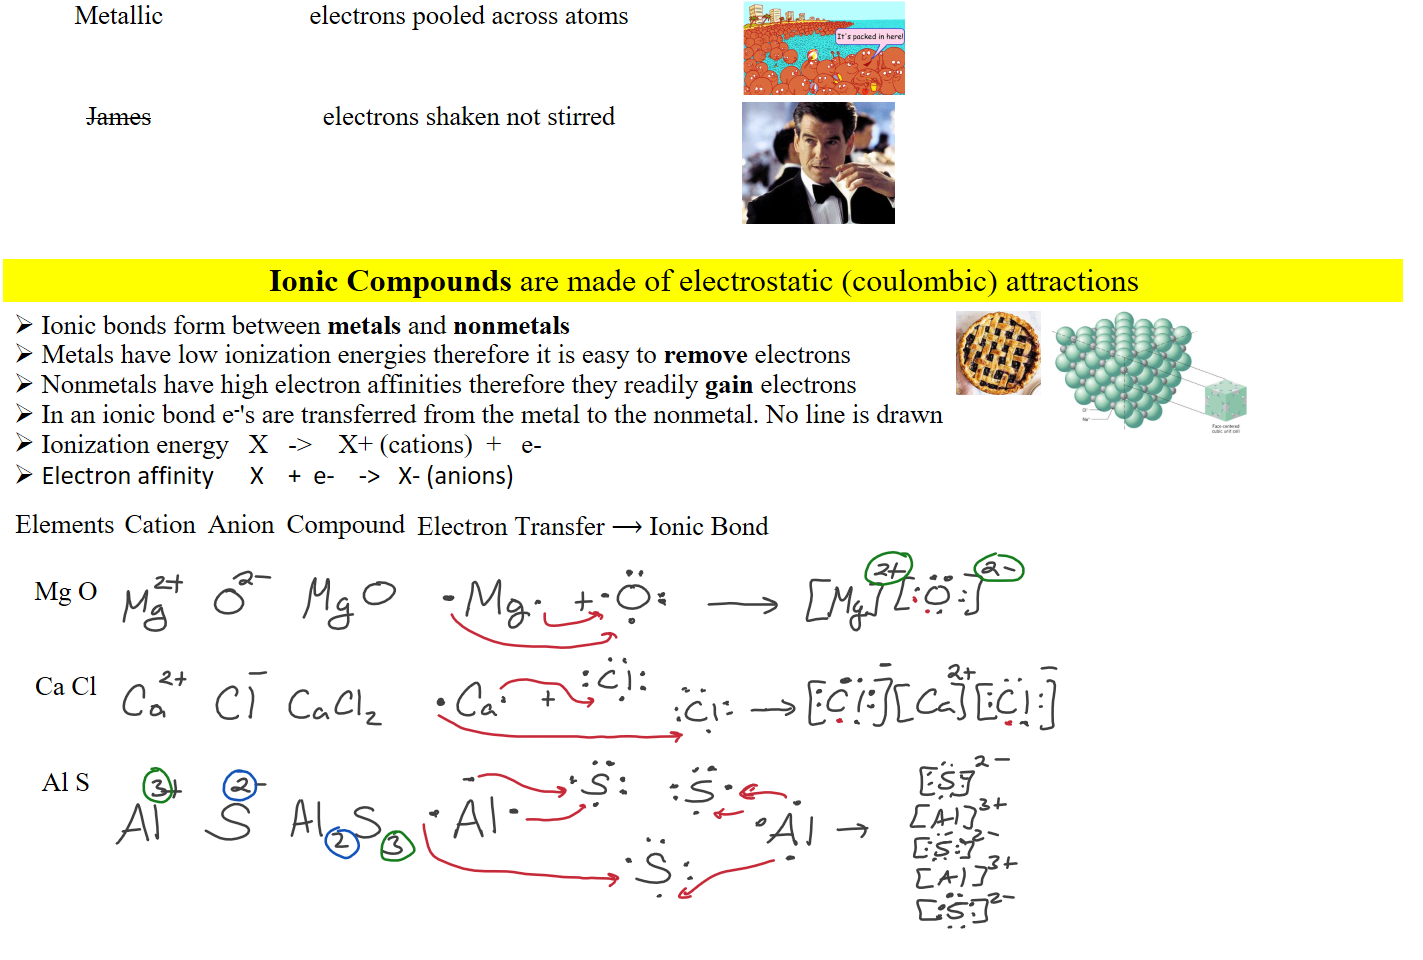 Metallic electrons pooled across atoms
It's packed in here!
James electrons shaken not stirred
Ionic Compounds are made of electrostatic (coulombic) attractions
➢ Ionic bonds form between metals and nonmetals
➢ Metals have low ionization energies therefore it is easy to remove electrons
➢ Nonmetals have high electron affinities therefore they readily gain electrons
➢ In an ionic bond e⁻'s are transferred from the metal to the nonmetal. No line is drawn
➢ Ionization energy X -> X+ (cations) + e-
➢ Electron affinity X + e- -> X- (anions)
Cl⁻
Na⁺
Face-centered
cubic unit cell
Elements Cation Anion Compound Electron Transfer → Ionic Bond
Mg O Mg²⁺ O²⁻ MgO ·Mg· + ·O: → [Mg]²⁺ [:O:]²⁻
Ca Cl Ca²⁺ Cl⁻ CaCl₂ ·Ca· + :Cl: :Cl: → [:Cl:]⁻ [Ca]²⁺ [:Cl:]⁻
Al S Al³⁺ S²⁻ Al₂S₃ ·Al· ·S: :S· ·S: ·Al →
[:S:]²⁻
[Al]³⁺
[:S:]²⁻
[Al]³⁺
[:S:]²⁻